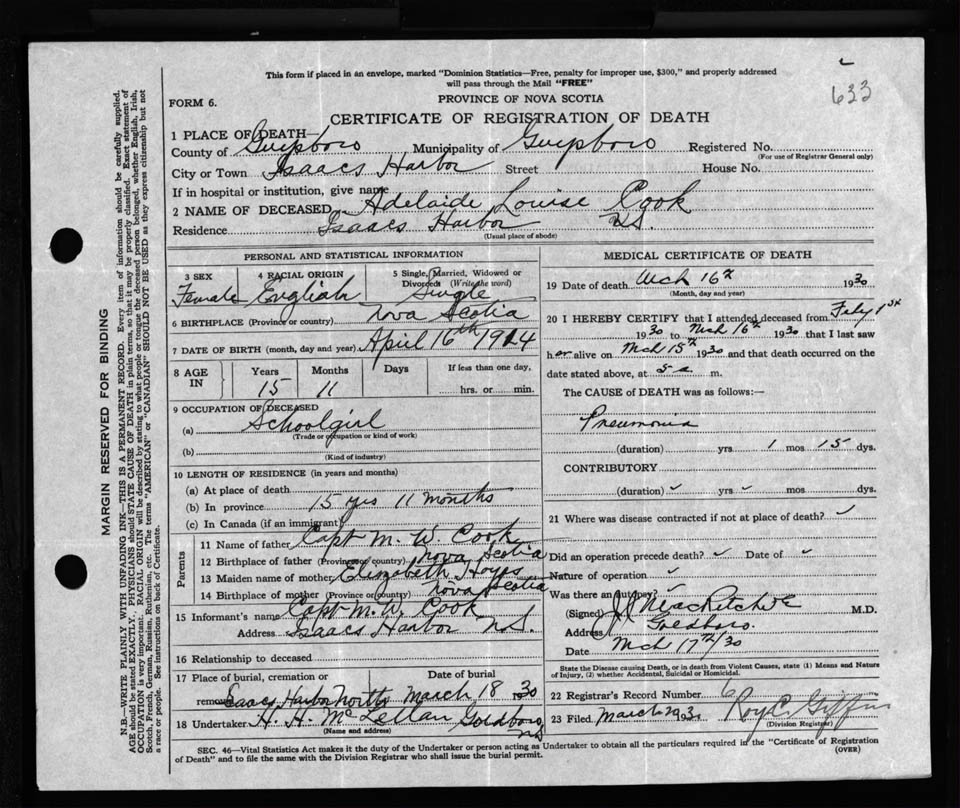 This form if placed in an envelope, marked "Dominion Statistics—Free, penalty for improper use, $300," and properly addressed
will pass through the Mail "FREE"
633
FORM 6.
PROVINCE OF NOVA SCOTIA
CERTIFICATE OF REGISTRATION OF DEATH
1 PLACE OF DEATH—
County of Guysboro Municipality of Guysboro Registered No.
(For use of Registrar General only)
City or Town Isaacs Harbor Street House No.
If in hospital or institution, give name
2 NAME OF DECEASED Adelaide Louise Cook
Residence Isaacs Harbor N.S.
(Usual place of abode)
PERSONAL AND STATISTICAL INFORMATION
3 SEX 4 RACIAL ORIGIN 5 Single, Married, Widowed or
Divorced (Write the word)
Female English Single
6 BIRTHPLACE (Province or country) Nova Scotia
7 DATE OF BIRTH (month, day and year) April 16th 1914
8 AGE IN Years Months Days If less than one day,
15 11 hrs. or min.
9 OCCUPATION OF DECEASED
(a) Schoolgirl
(Trade or occupation or kind of work)
(b)
(Kind of industry)
10 LENGTH OF RESIDENCE (in years and months)
(a) At place of death
(b) In province 15 yrs 11 months
(c) In Canada (if an immigrant)
Parents
11 Name of father Capt M. W. Cook
12 Birthplace of father (Province or country) Nova Scotia
13 Maiden name of mother Elizabeth
14 Birthplace of mother (Province or country) Nova Scotia
15 Informant's name Capt M. W. Cook
Address Isaacs Harbor N.S.
16 Relationship to deceased
17 Place of burial, cremation or Date of burial
removal Isaacs Harbor North March 18 1930
18 Undertaker H. H. McLellan Goldboro NS
(Name and address)
MEDICAL CERTIFICATE OF DEATH
19 Date of death Mch 16th 1930
(Month, day and year)
20 I HEREBY CERTIFY that I attended deceased from Feby 1st
1930 to Mch 16th 1930 that I last saw
her alive on Mch 15th 1930 and that death occurred on the
date stated above, at 5 a m.
The CAUSE of DEATH was as follows:—
Pneumonia
(duration) yrs 1 mos 15 dys.
CONTRIBUTORY
(duration) yrs mos dys.
21 Where was disease contracted if not at place of death?
Did an operation precede death? Date of
Nature of operation
Was there an autopsy?
(Signed) M.D.
Address Goldboro.
Date Mch 17th/30
State the Disease causing Death, or in death from Violent Causes, state (1) Means and Nature
of Injury, (2) whether Accidental, Suicidal or Homicidal.
22 Registrar's Record Number 6
23 Filed March 193 Roy C Giffin
(Division Registrar)
SEC. 46—Vital Statistics Act makes it the duty of the Undertaker or person acting as Undertaker to obtain all the particulars required in the "Certificate of Registration
of Death" and to file the same with the Division Registrar who shall issue the burial permit.
(OVER)
MARGIN RESERVED FOR BINDING
N.B.—WRITE PLAINLY WITH UNFADING INK—THIS IS A PERMANENT RECORD. Every item of information should be carefully supplied.
AGE should be stated EXACTLY. PHYSICIANS should STATE CAUSE OF DEATH in plain terms, so that it may be properly classified. Exact statement of
OCCUPATION is very important. RACIAL ORIGIN will be described by stating to what people or tongue the deceased person belonged, whether English, Irish,
Scotch, French, German, Russian, Ruthenian, etc. The terms "AMERICAN" or "CANADIAN" SHOULD NOT BE USED as they express citizenship but not
a race or people. See instructions on back of Certificate.